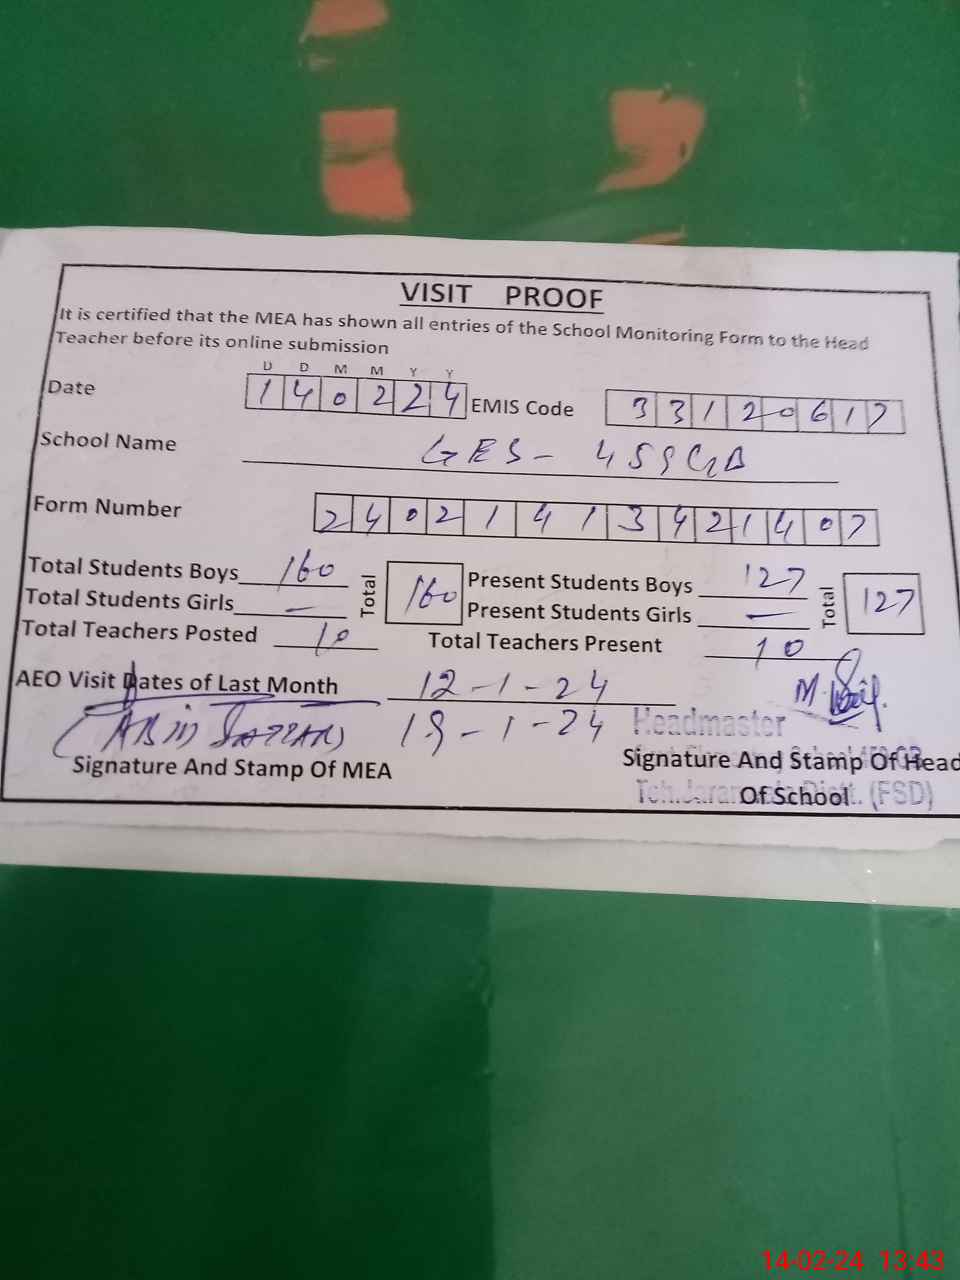 VISIT PROOF
It is certified that the MEA has shown all entries of the School Monitoring Form to the Head
Teacher before its online submission
D D M M Y Y
Date 140224 EMIS Code 33120617
School Name GES - 459GB
Form Number 24021413421407
Total Students Boys 160 Total 160 Present Students Boys 127 Total 127
Total Students Girls — Present Students Girls —
Total Teachers Posted 10 Total Teachers Present 10
AEO Visit Dates of Last Month 12-1-24
19-1-24 Headmaster
Signature And Stamp Of MEA Signature And Stamp Of Head
Of School
(FSD)
14-02-24 13:43